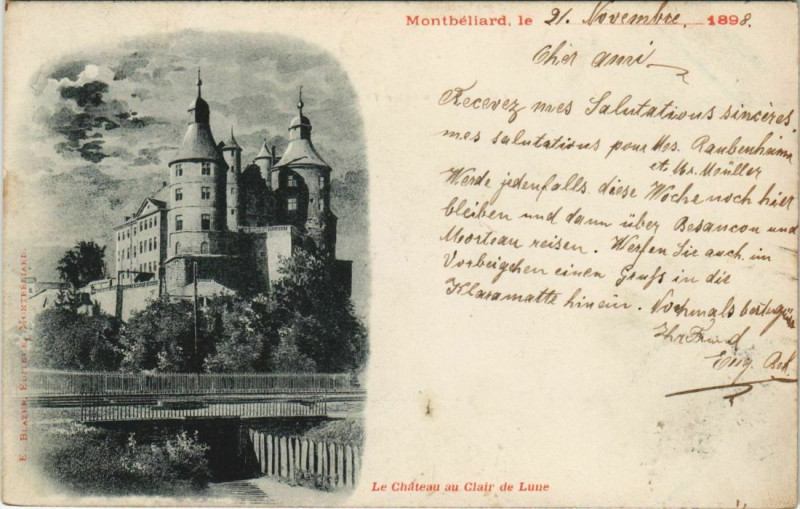 Montbéliard, le 21. Novembre. 1898.
Cher ami
Recevez mes Salutations sincères,
mes salutations pour Mes.
et Mr. Müller
Werde jedenfalls diese Woche noch hier
bleiben und dann über Besançon und
Morteau reisen. Werfen Sie auch im
Vorbeigehen einen Gruss in die
Klaramatte hinein. Nochmals
Ihr Freund
Eug.
Le Château au Clair de Lune
E. BLAZER, EDITEUR, MONTBÉLIARD.